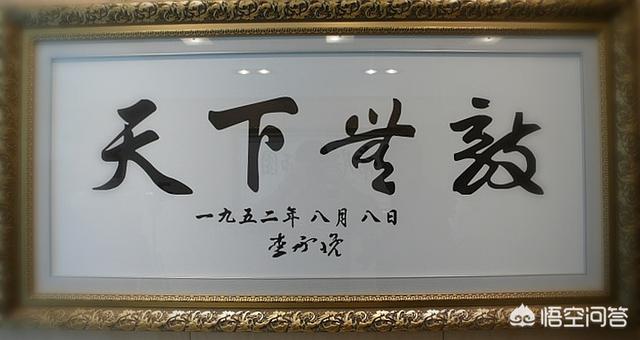 天下無敵
一九五二年 八月 八日
李承晩
悟空问答